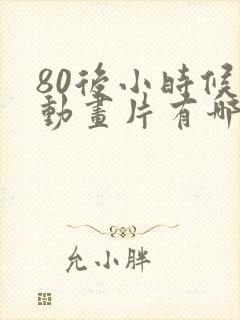 80後小時候
動畫片有哪
允小胖